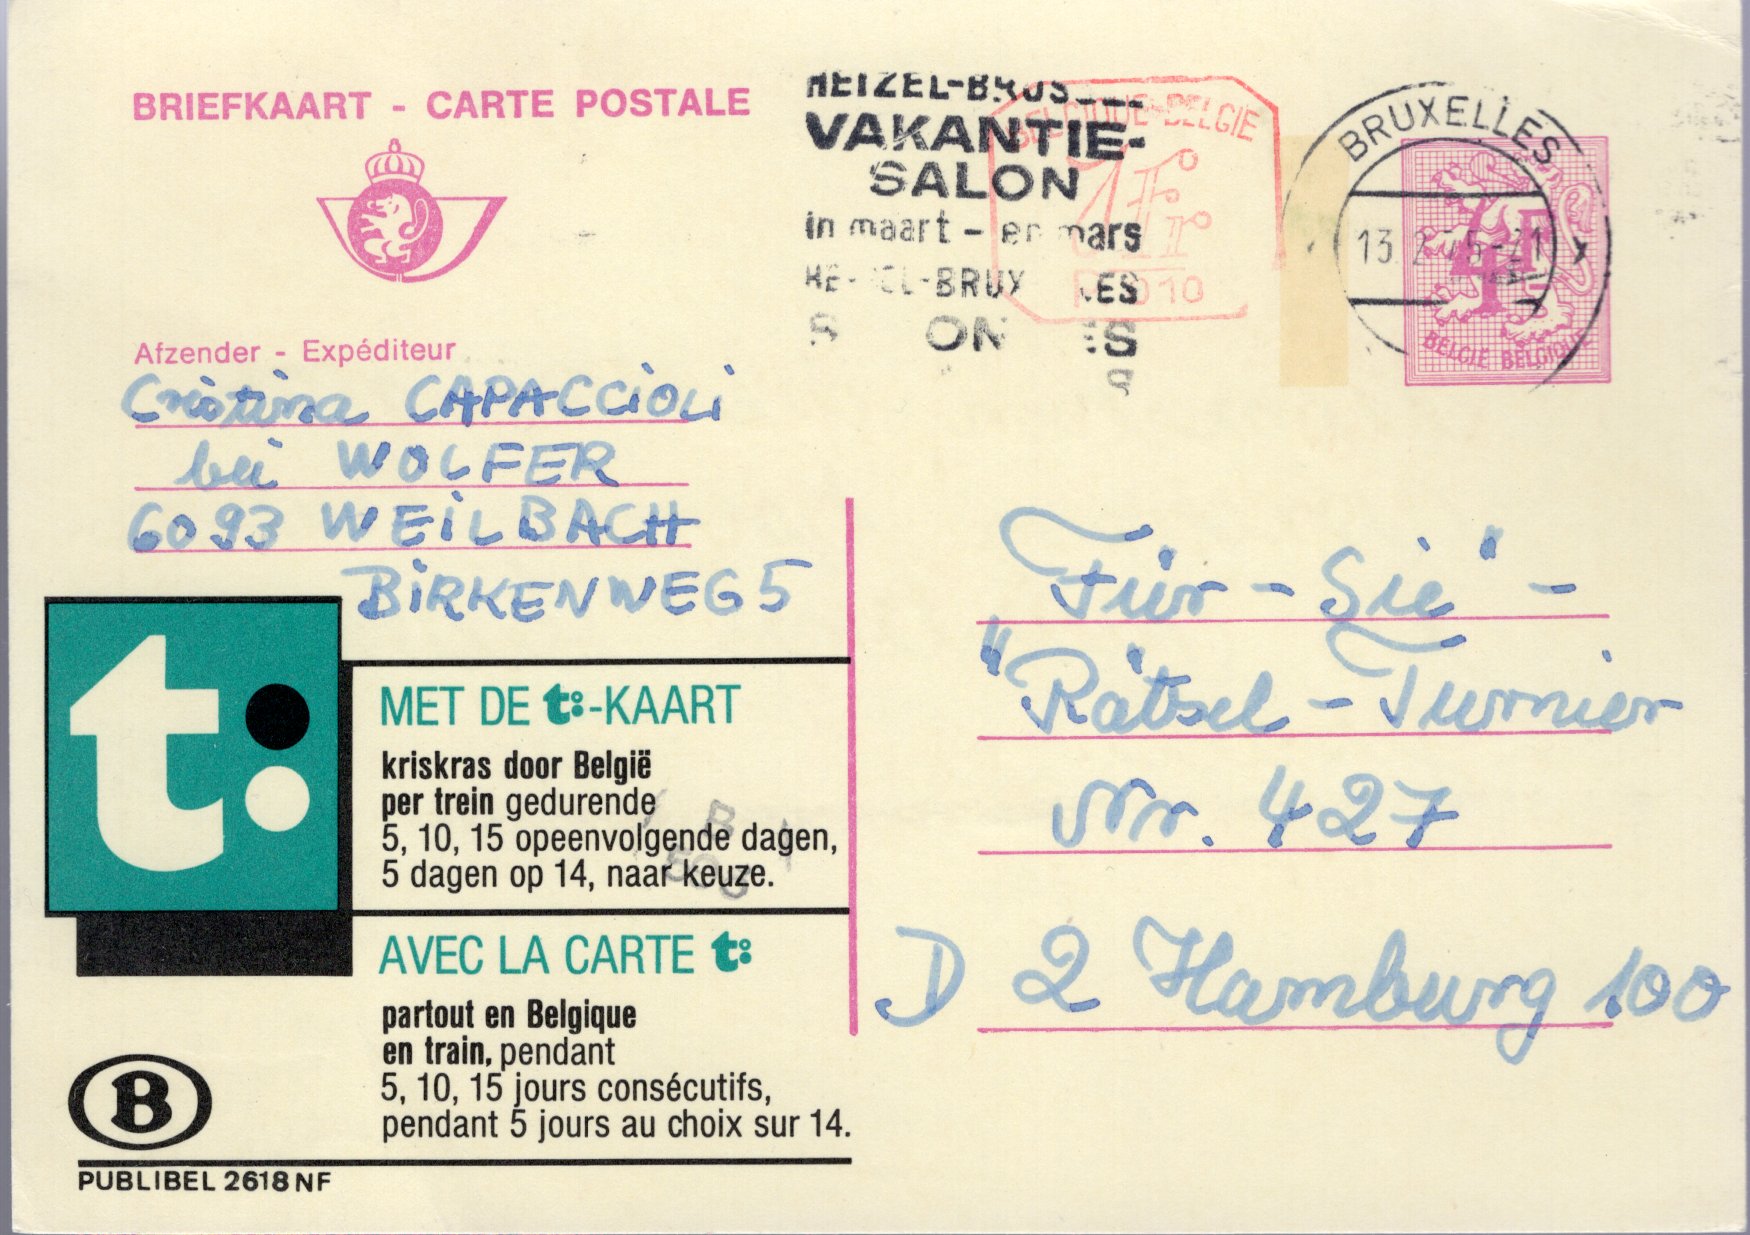 BRIEFKAART - CARTE POSTALE
VAKANTIE-
SALON
in maart - en mars
BELGIQUE-BELGIË
1F
P010
BRUXELLES
13.2
BELGIË BELGIQUE
Afzender - Expéditeur
Cristina CAPACCiOLi
bei WOLFER
6093 WEiLBACH
BiRKENWEG 5
Für - Sie" -
"Rätsel - Turnier
Nr. 427
D 2 Hamburg 100
t:
MET DE t:-KAART
kriskras door België
per trein gedurende
5, 10, 15 opeenvolgende dagen,
5 dagen op 14, naar keuze.
AVEC LA CARTE t:
partout en Belgique
en train, pendant
5, 10, 15 jours consécutifs,
pendant 5 jours au choix sur 14.
B
PUBLIBEL 2618 NF